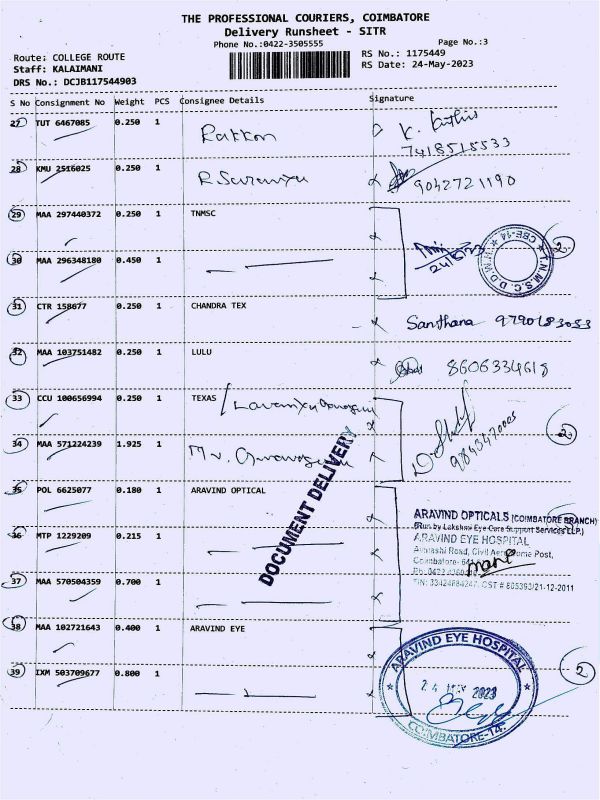 THE PROFESSIONAL COURIERS, COIMBATORE
Delivery Runsheet - SITR
Phone No.:0422-3505555
Page No.:3
Route: COLLEGE ROUTE
Staff: KALAIMANI
DRS No.: DCJB117544903
RS No.: 1175449
RS Date: 24-May-2023
S No Consignment No Weight PCS Consignee Details Signature
27 TUT 6467085 0.250 1
7418515533
28 KMU 2516025 0.250 1 R. Saranya 9042721190
29 MAA 297440372 0.250 1 TNMSC
30 MAA 296348180 0.450 1
2
31 CTR 158677 0.250 1 CHANDRA TEX Santhana 9790183053
32 MAA 103751482 0.250 1 LULU 8606334618
33 CCU 100656994 0.250 1 TEXAS
34 MAA 571224239 1.925 1
2
DOCUMENT DELIVERY
35 POL 6625077 0.180 1 ARAVIND OPTICAL
36 MTP 1229209 0.215 1
37 MAA 570504359 0.700 1
ARAVIND OPTICALS (COIMBATORE BRANCH)
(Run by Lakshmi Eye Care Support Services LLP.)
ARAVIND EYE HOSPITAL
Avinashi Road, Civil Aerodrome Post,
Coimbatore-
38 MAA 102721643 0.400 1 ARAVIND EYE
39 IXM 503709677 0.800 1
ARAVIND EYE HOSPITAL
24 MAY 2023
COIMBATORE-14.
2